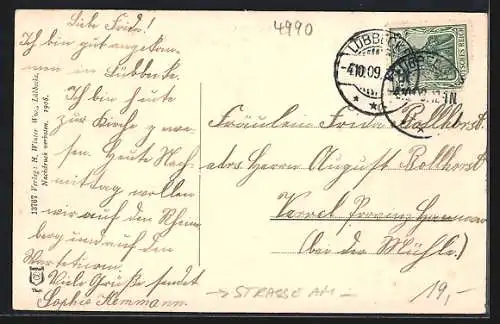 Liebe Frida!
Ich bin gut angekom-
men in Lübbecke.
Ich bin heute
zur Kirche gewe-
sen. Heute Nach-
mittag wollen
wir auf den
berg und auf den
Warteturm.
Viele Grüße sendet
Sophie Hemmann.
13767 Verlag: H. Winter Lübbecke.
Nachdruck verboten. 1908.
4990
LÜBBECKE
4.10.09.
DEUTSCHES REICH
Fräulein Frida Rollhorst
adrs Herrn August Rollhorst
Varrel Provinz Hannover
(bei der Mühle.)
→ STRASSE AM –
19,-